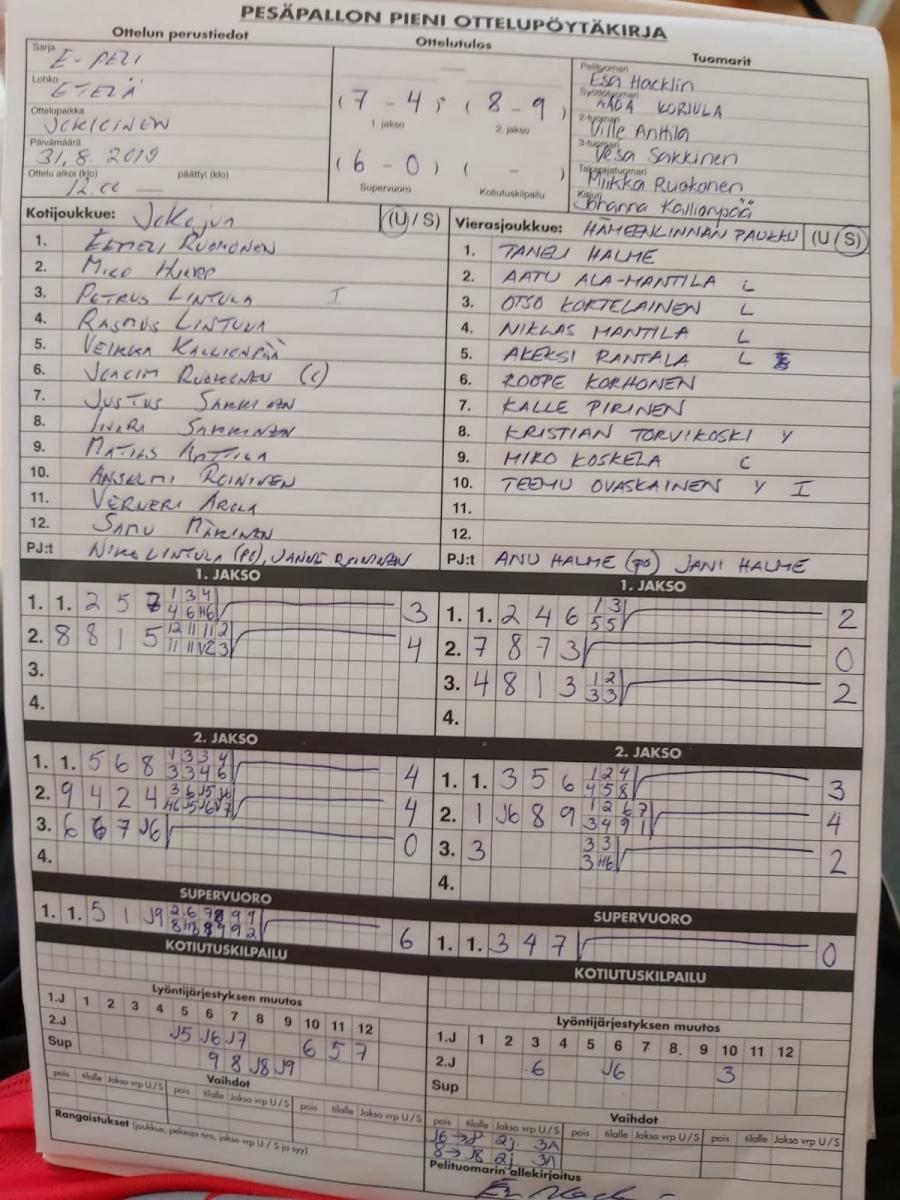 PESÄPALLON PIENI OTTELUPÖYTÄKIRJA
Ottelun perustiedot
Ottelutulos
Tuomarit
Sarja
E-PEZI
Lohko
ETELÄ
Ottelupaikka
JOKIOINEN
Päivämäärä
31.8.2019
Ottelu alkoi (klo) päättyi (klo)
12.00 —
(7 - 4); (8 - 9)
1. jakso 2. jakso
(6 - 0) ( - )
Supervuoro Kotiutuskilpailu
Pelituomari
Esa Hacklin
Syöttötuomari
KORJULA
2-tuomari
Ville Anttila
3-tuomari
Vesa Sakkinen
Takarajatuomari
Miikka Ruokonen
Kirjuri
Johanna Kallionpää
Kotijoukkue: (U / S)
1. RUOKONEN
2. MICO
3. PETRUS LINTULA I
4. RASMUS LINTULA
5. VEIKKA KALLIONPÄÄ
6. JOACIM RUOKONEN (C)
7. JUSTUS SAKKINEN
8. SAKKINEN
9. MATIAS ANTTILA
10. ANSELMI ROININEN
11. VERNERI AROLA
12. SAMU MÄKINEN
PJ:t NIKO LINTULA (PJ), JANNE ROININEN
Vierasjoukkue: HÄMEENLINNAN PAUKKU (U / S)
1. TANELI HALME
2. AATU ALA-MANTILA L
3. OTSO KORTELAINEN L
4. NIKLAS MANTILA L
5. AKEKSI RANTALA L
6. ROOPE KORHONEN
7. KALLE PIRINEN
8. KRISTIAN TORVIKOSKI Y
9. MIKO KOSKELA C
10. TEEMU OVASKAINEN Y I
11.
12.
PJ:t ANU HALME (PJ) JANI HALME
1. JAKSO
1. 1. 2 5 7 1 3 4 3
4 6 H6
2. 8 8 1 5 12 11 11 2 4
11 11 V2 3
3.
4.
1. JAKSO
1. 1. 2 4 6 1 3 2
5 5
2. 7 8 7 3 0
3. 4 8 1 3 1 2 2
3 3
4.
2. JAKSO
1. 1. 5 6 8 1 3 3 4 4
3 3 4 6
2. 9 4 2 4 3 6 J5 J6 4
H6 J5 J6 J7
3. 6 6 7 J6 0
4.
2. JAKSO
1. 1. 3 5 6 1 2 4 3
4 5 8
2. 1 J6 8 9 1 2 6 7 4
3 4 9 1
3. 3 3 3 2
3 H6
4.
SUPERVUORO
1. 1. 5 1 J9 6
SUPERVUORO
1. 1. 3 4 7 0
KOTIUTUSKILPAILU
KOTIUTUSKILPAILU
Lyöntijärjestyksen muutos
1.J 1 2 3 4 5 6 7 8 9 10 11 12
2.J J5 J6 J7 6 5 7
Sup 9 8 J8 J9
Lyöntijärjestyksen muutos
1.J 1 2 3 4 5 6 7 8. 9 10 11 12
2.J 6 J6 3
Sup
Vaihdot
pois tilalle Jakso vrp U / S pois tilalle Jakso vrp U / S pois tilalle Jakso vrp U / S
Rangaistukset (joukkue, pelaaja nro, jakso vrp U / S ja syy)
Vaihdot
pois tilalle Jakso vrp U / S pois tilalle Jakso vrp U / S pois tilalle Jakso vrp U / S
J6 → 8 2j 3A
8 → J8 2j 3A
Pelituomarin allekirjoitus